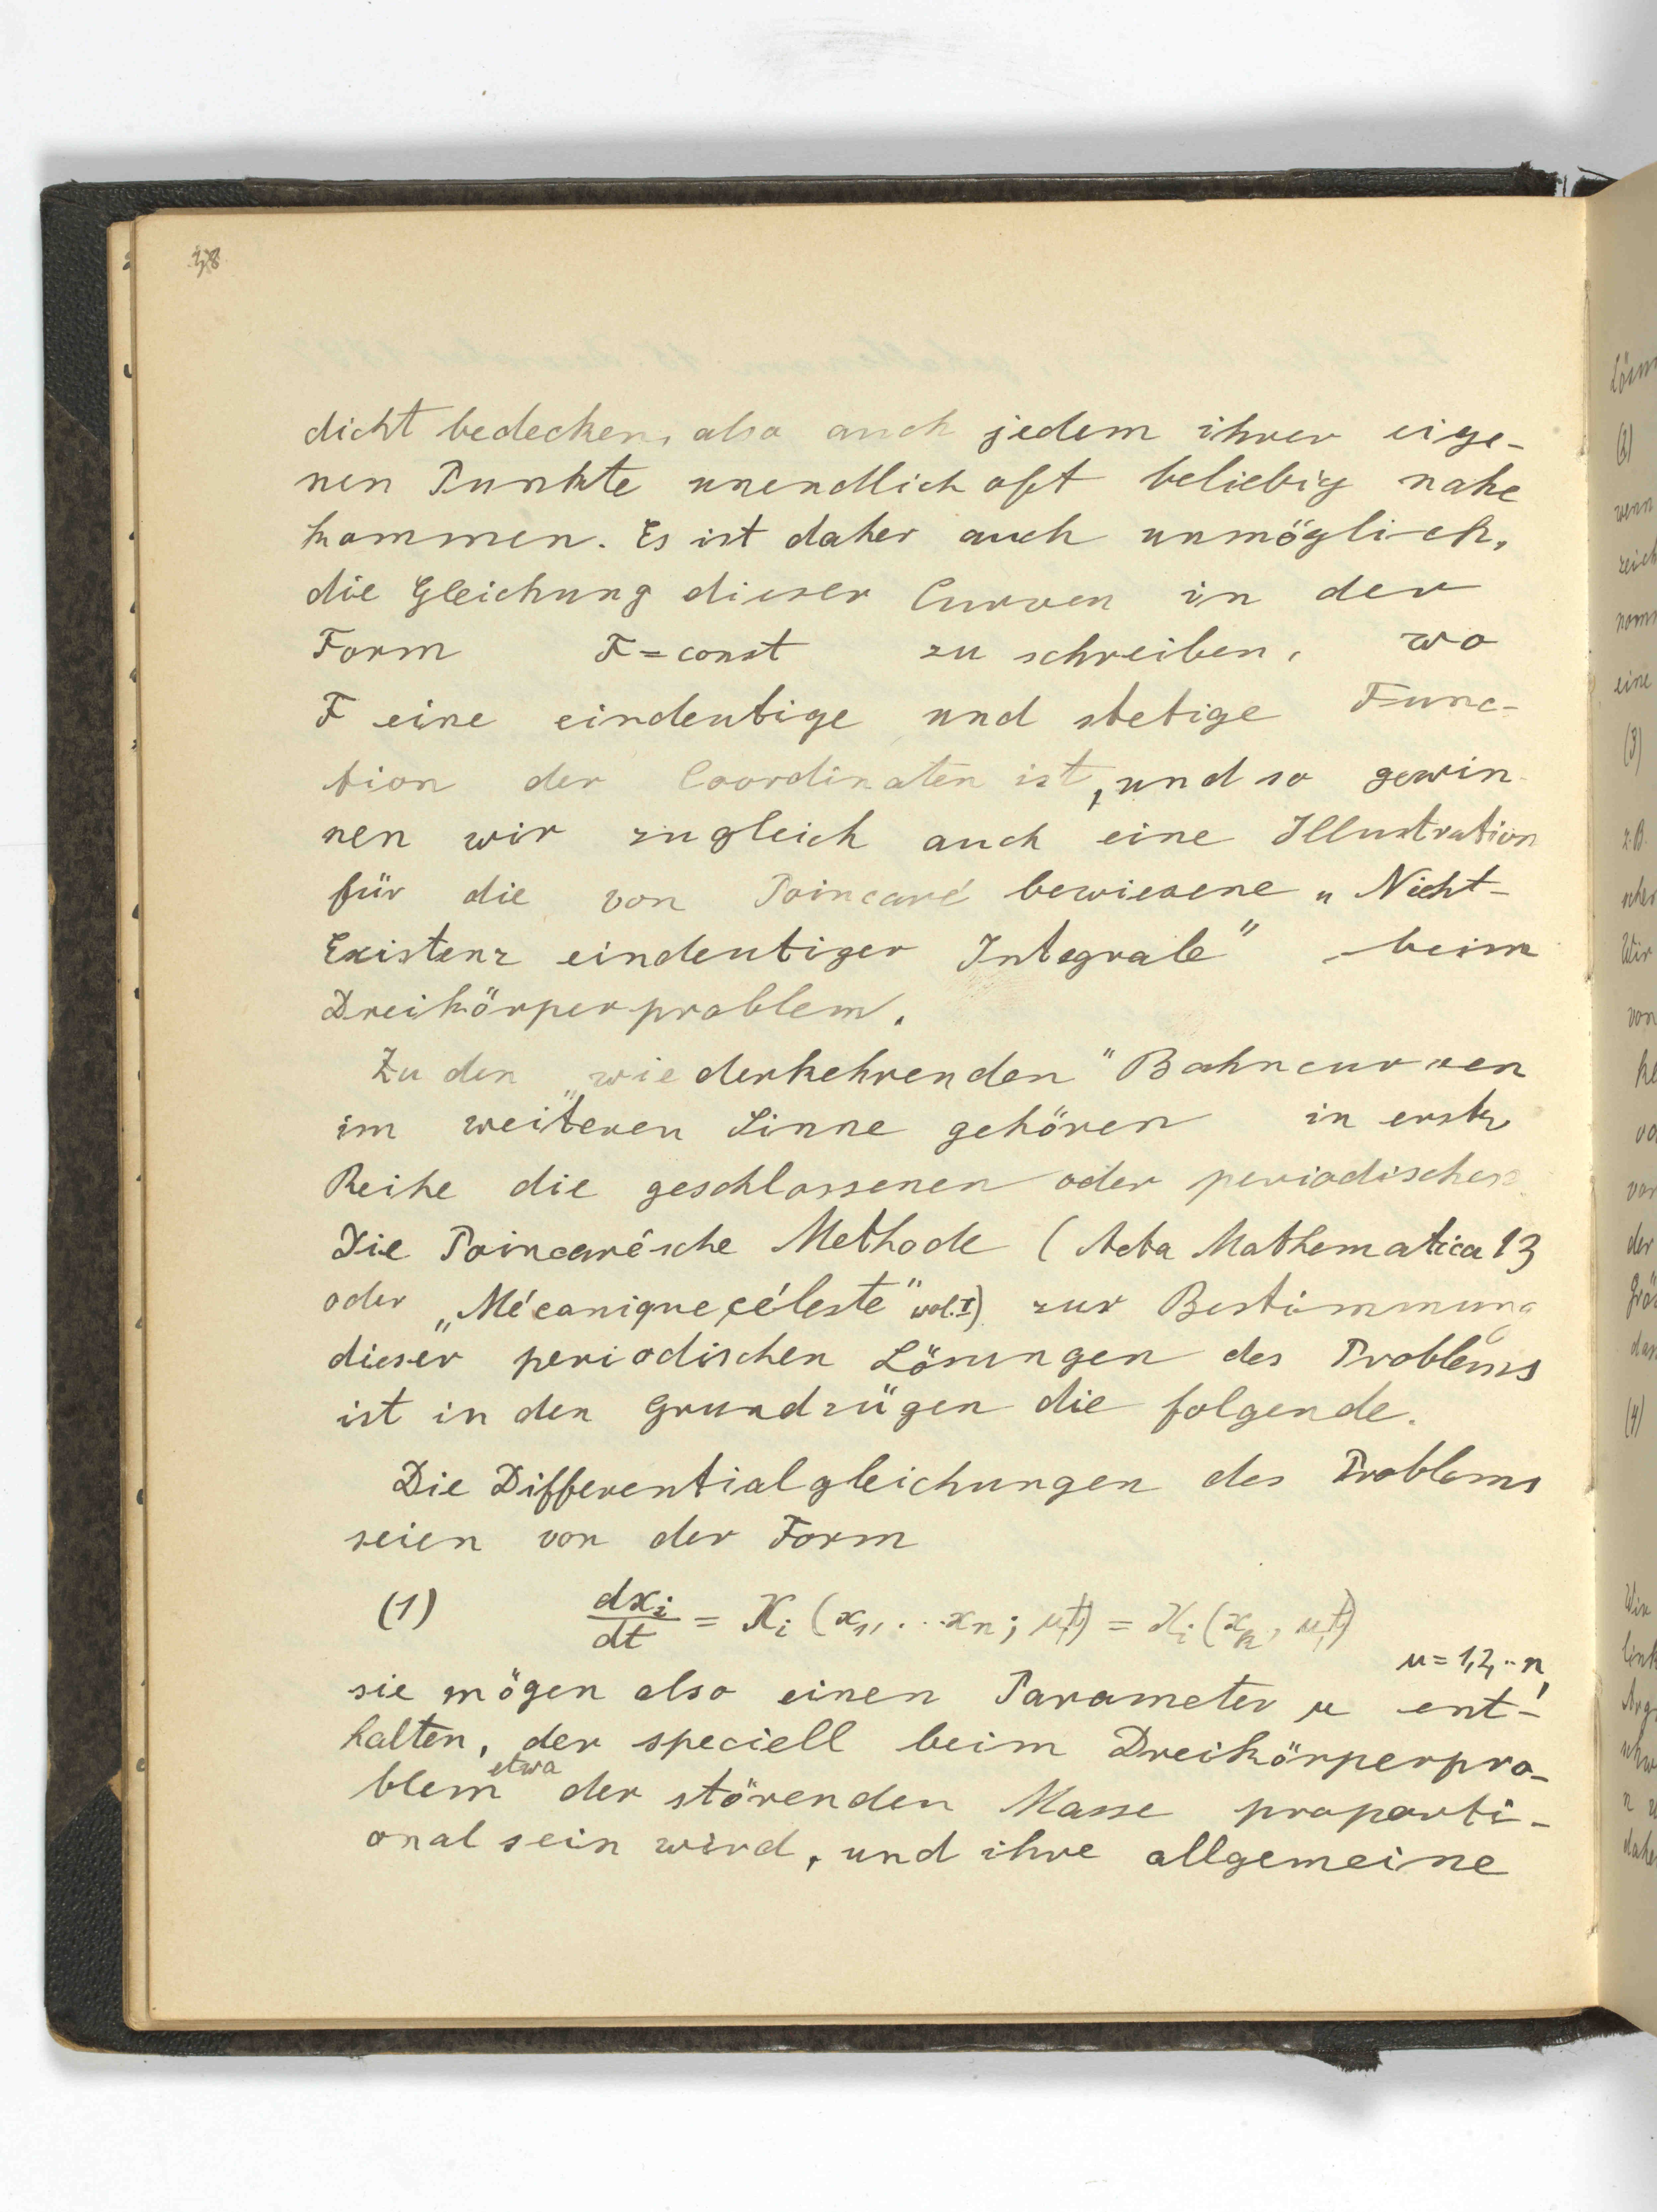 38
dicht bedecken, also auch jedem ihrer eige-
nen Punkte unendlich oft beliebig nahe
kommen. Es ist daher auch unmöglich,
die Gleichung dieser Curven in der
Form F = const zu schreiben, wo
F eine eindeutige und stetige Func-
tion der Coordinaten ist, und so gewin-
nen wir zugleich auch eine Illustration
für die von Poincaré bewiesene „Nicht-
Existenz eindeutiger Integrale" beim
Dreikörperproblem.
Zu den „wiederkehrenden" Bahncurven
im weiteren Sinne gehören in erster
Reihe die geschlossenen oder periodischen
Die Poincarésche Methode (Acta Mathematica 13
oder „Mécanique céleste" vol. I) zur Bestimmung
dieser periodischen Lösungen des Problems
ist in den Grundzügen die folgende.
Die Differentialgleichungen des Problems
seien von der Form
(1) dxi/dt = Xi (x1, ... xn; μ,t) = Xi (xk, μ,t)
κ = 1, 2, ... n,
sie mögen also einen Parameter μ ent-
halten, der speciell beim Dreikörperpro-
blem etwa der störenden Masse proporti-
onal sein wird, und ihre allgemeine
(2)
wenn
eine
(3)
z.B.
Wir
von
der
(4)
Wir